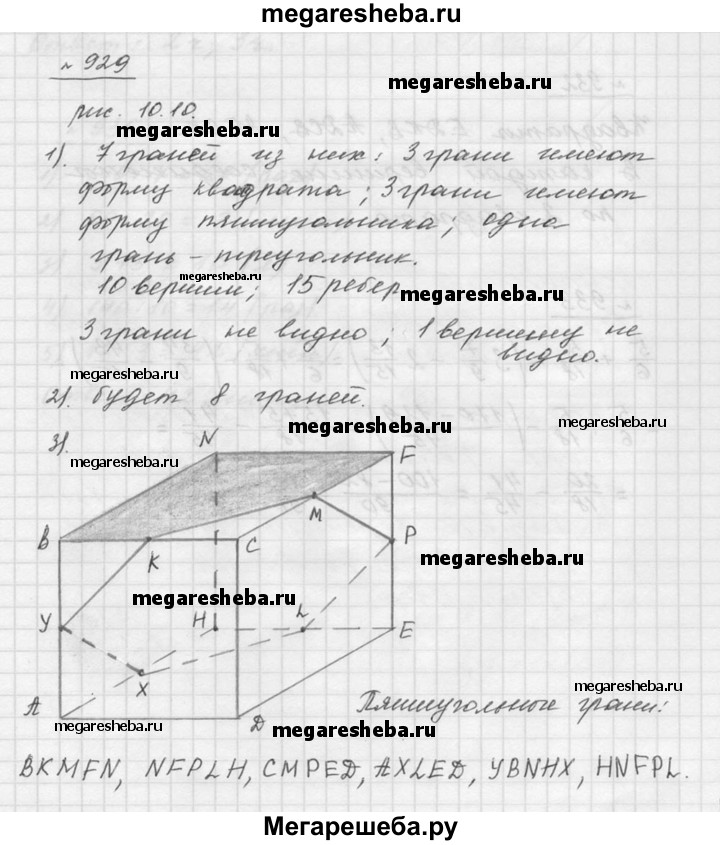 megaresheba.ru
№ 929
megaresheba.ru
рис. 10.10.
megaresheba.ru
1). 7 граней из них: 3 грани имеют
форму квадрата; 3 грани имеют
форму пятиугольника; одна
грань – треугольник.
megaresheba.ru
10 вершин; 15 ребер
megaresheba.ru
3 грани не видно; 1 вершину не
видно.
megaresheba.ru
2). будет 8 граней.
megaresheba.ru
megaresheba.ru
3).
megaresheba.ru
N F
M
B K C P
megaresheba.ru
megaresheba.ru
У H L E
X
A D
Пятиугольные грани:
megaresheba.ru
megaresheba.ru
megaresheba.ru
BKMFN, NFPLH, CMPED, AXLED, YBNHX, HNFPL.
Мегарешеба.ру